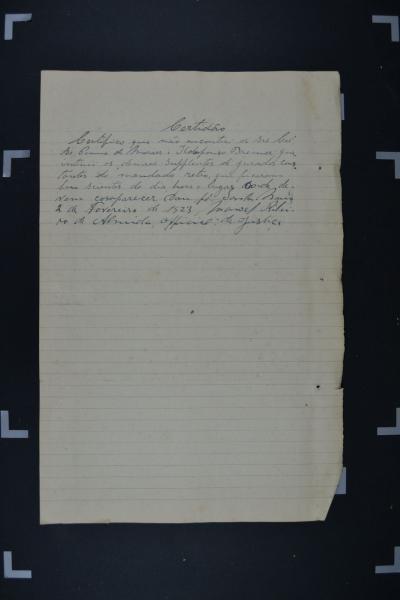 Certidão
Certifico que não encontrei
de Moraes Theodomiro que
intimei os demais Supplentes de jurados cons
tantes do mandado, retro, que ficaram
bem scientes do dia hora e lugar onde de-
vem comparecer. Dou fé
2 de Fevereiro de 1923, Manoel Ribei
ro de Almeida, Official de Justiça